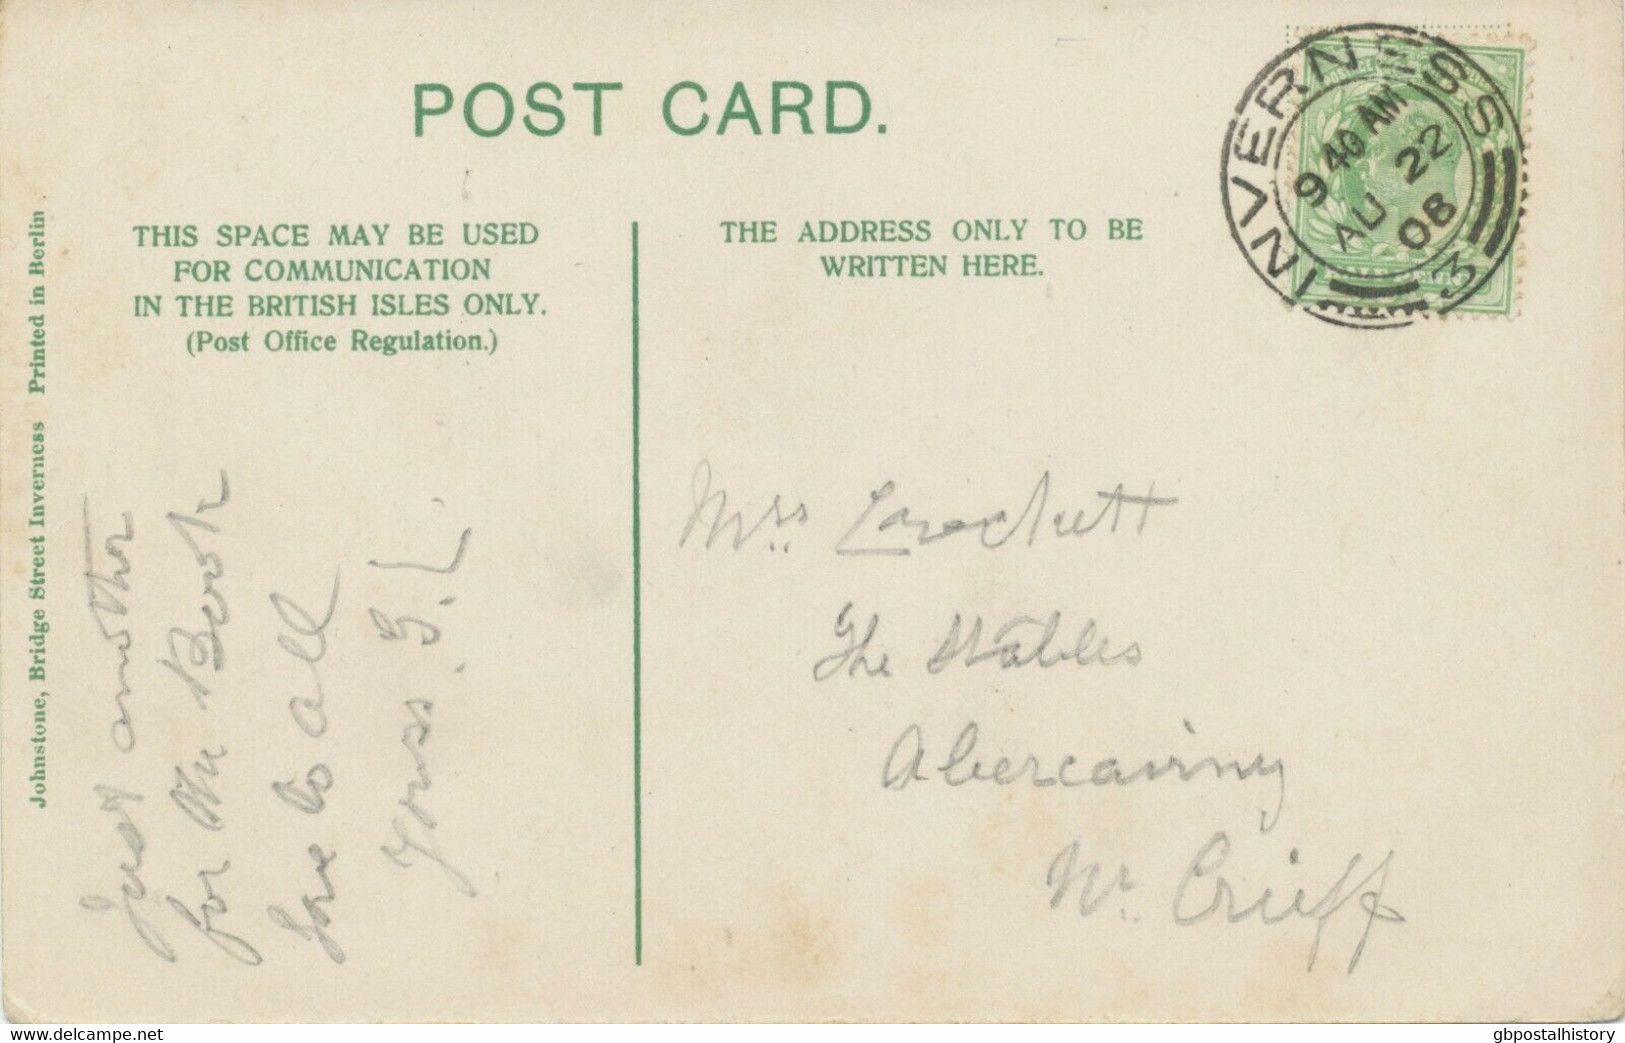 POST CARD.
THIS SPACE MAY BE USED
FOR COMMUNICATION
IN THE BRITISH ISLES ONLY.
(Post Office Regulation.)
THE ADDRESS ONLY TO BE
WRITTEN HERE.
INVERNESS
9 40 AM
AU 22
08
3
Johnstone, Bridge Street Inverness Printed in Berlin
Just another
for the Book
love to all
Yours. G. L.
Mrs
The Stables
Abercairny
Nr. Crieff
www.delcampe.net
gbpostalhistory